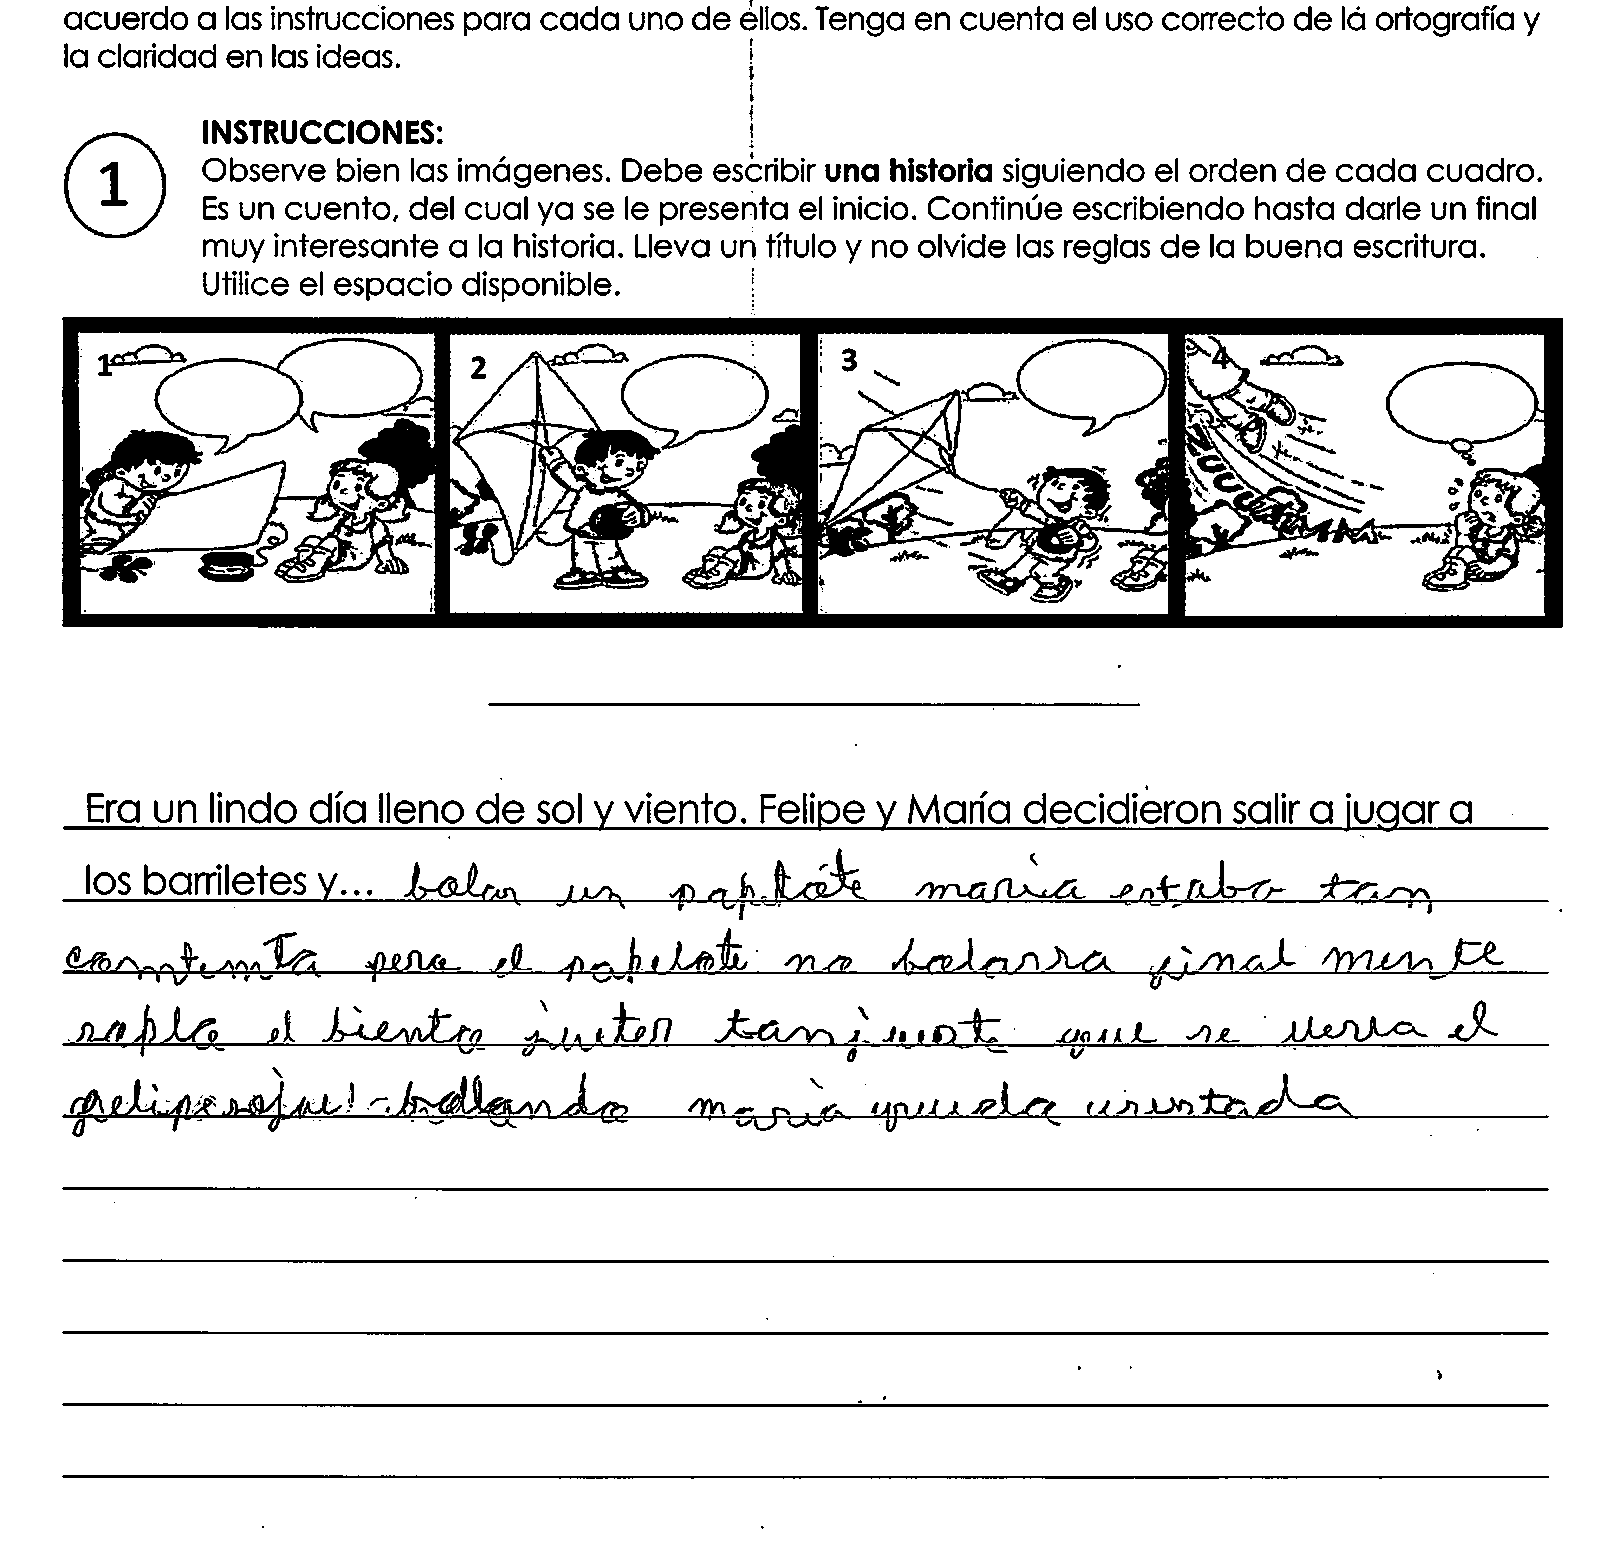 acuerdo a las instrucciones para cada uno de ellos. Tenga en cuenta el uso correcto de la ortografía y
la claridad en las ideas.
1
INSTRUCCIONES:
Observe bien las imágenes. Debe escribir una historia siguiendo el orden de cada cuadro.
Es un cuento, del cual ya se le presenta el inicio. Continúe escribiendo hasta darle un final
muy interesante a la historia. Lleva un título y no olvide las reglas de la buena escritura.
Utilice el espacio disponible.
1 2 3 4
Era un lindo día lleno de sol y viento. Felipe y María decidieron salir a jugar a
los barriletes y... bolar un paplóte maria estaba tan
comtenta pero el papelote no bolarra final mente
sopla el biento que se llerra el
bollando maria queda